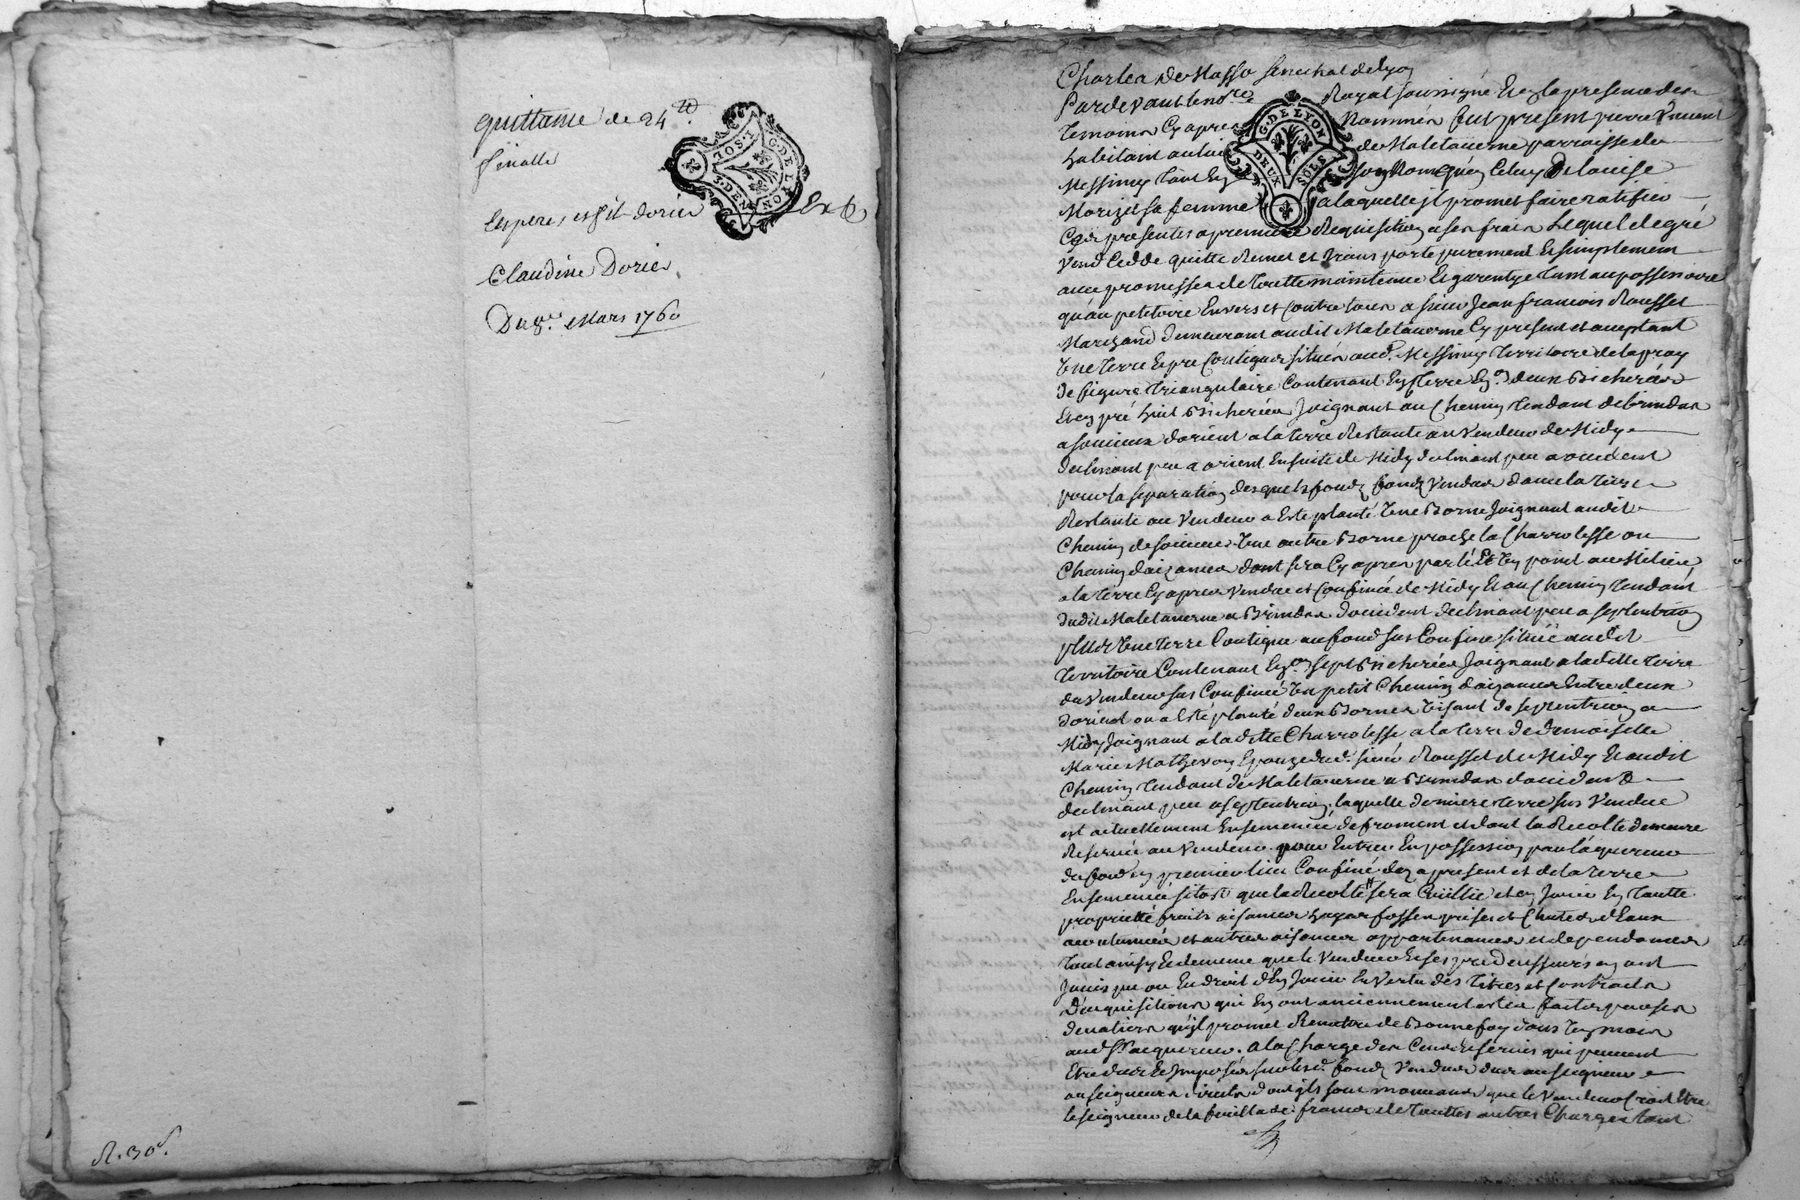 quittance de 24ᵗᵗ
finalle
Les peres et fils dorier
Claudine Dorier
Du 8ᵉ Mars 1760
G. DE LYON
1. SOL. 3. DEN
R. 30ˢ
Charles de Masso senechal de lyon
Pardevant le nore Royal soussigné Et en la presence des
Temoins Cy apres Nommés fut present pierre Vincent
habitant au lieu de Maletaverne parroisse de
Messimy tant En son Nom qu'en Celuy De louise
sa femme a laquelle il promet faire ratifier
G. DE LYON
DEUX SOLS
Ces presentes a premiere Requisition a ses frais Lequel de gré
Vend Cedde quitte Remet et transporte purement Et simplement
avec promesse de toutte maintenue Et garentye tant au possessoire
qu'au petitoire Envers et Contre tous a sieur Jean francois Rousset
Marchand demeurant audit Maletaverne Cy present et aceptant
Une Terre Et pré Contigus situés aud. Messimy territoire de lapray
de figure triangulaire Contenant En terre En.on deux Bicherées
Et en pré huit Bicherées Joignant au Chemin tendant de brindas
a soucieux d'orient a la terre Restante au Vendeur de Midy
declinant peu a orient Ensuite de Midy declinant peu a occident
pour la separation desquels fonds Vendus d'avec la Terre
Restante au Vendeur a Eté planté Une Borne Joignant audit
Chemin de soucieu Une autre Borne proche la Charrotesse ou
Chemin d'aizance dont sera Cy apres parlé Et Un point au Milieu
a la terre Cy apres Vendue et Confinée de Midy Et au Chemin tendant
dudit Maletaverne a Brindas d'occident declinant peu a septentrion
plus Une Terre Contigue au fond sus Confiné située audit
Territoire Contenant En.on sept Bicherées Joignant a ladite terre
du Vendeur sus Confinée Un petit Chemin d'aizance Entre deux
d'orient ou a Eté planté deux Bornes Visant de septentrion a
Midy Joignant a ladite Charrotesse a la terre de demoiselle
Marie Mathevon Epouze dud. sieur Rousset de Midy Et audit
Chemin tendant de Maletaverne a Brindas d'occident
declinant peu a septentrion, laquelle derniere terre sus Vendue
est actuellement Ensemencée de froment et dont la Recolte demeure
Reservée au Vendeur pour Entrer En possession par l'aquereur
du fond en premier lieu Confiné dez a present et de la terre
Ensemencée sitost que la Recolte sera Cüillie et en Jouir En toutte
proprieté fruits aisances fossés prises et Chutes d'Eaux
acoutumées et autres aisances appartenances et dependances
tout ainsy Et de meme que le Vendeur Et ses predecesseurs en ont
Jouis pu ou Eu droit d'En Jouir En Vertu des titres et Contracts
D'acquisitions qui En ont anciennement Eté faits
qu'il promet Remettre de Bonne foy dans Un mois
aud. sr. acquereur. a la Charge des Cens Et servis qui peuvent
Etre dus Et Imposés sur lesd. fonds Vendus dus au seigneur
ou seigneurs directs dont ils sont mouvans que le Vendeur Croit Etre
le seigneur de la feuillade: francs de touttes autres Charges tant